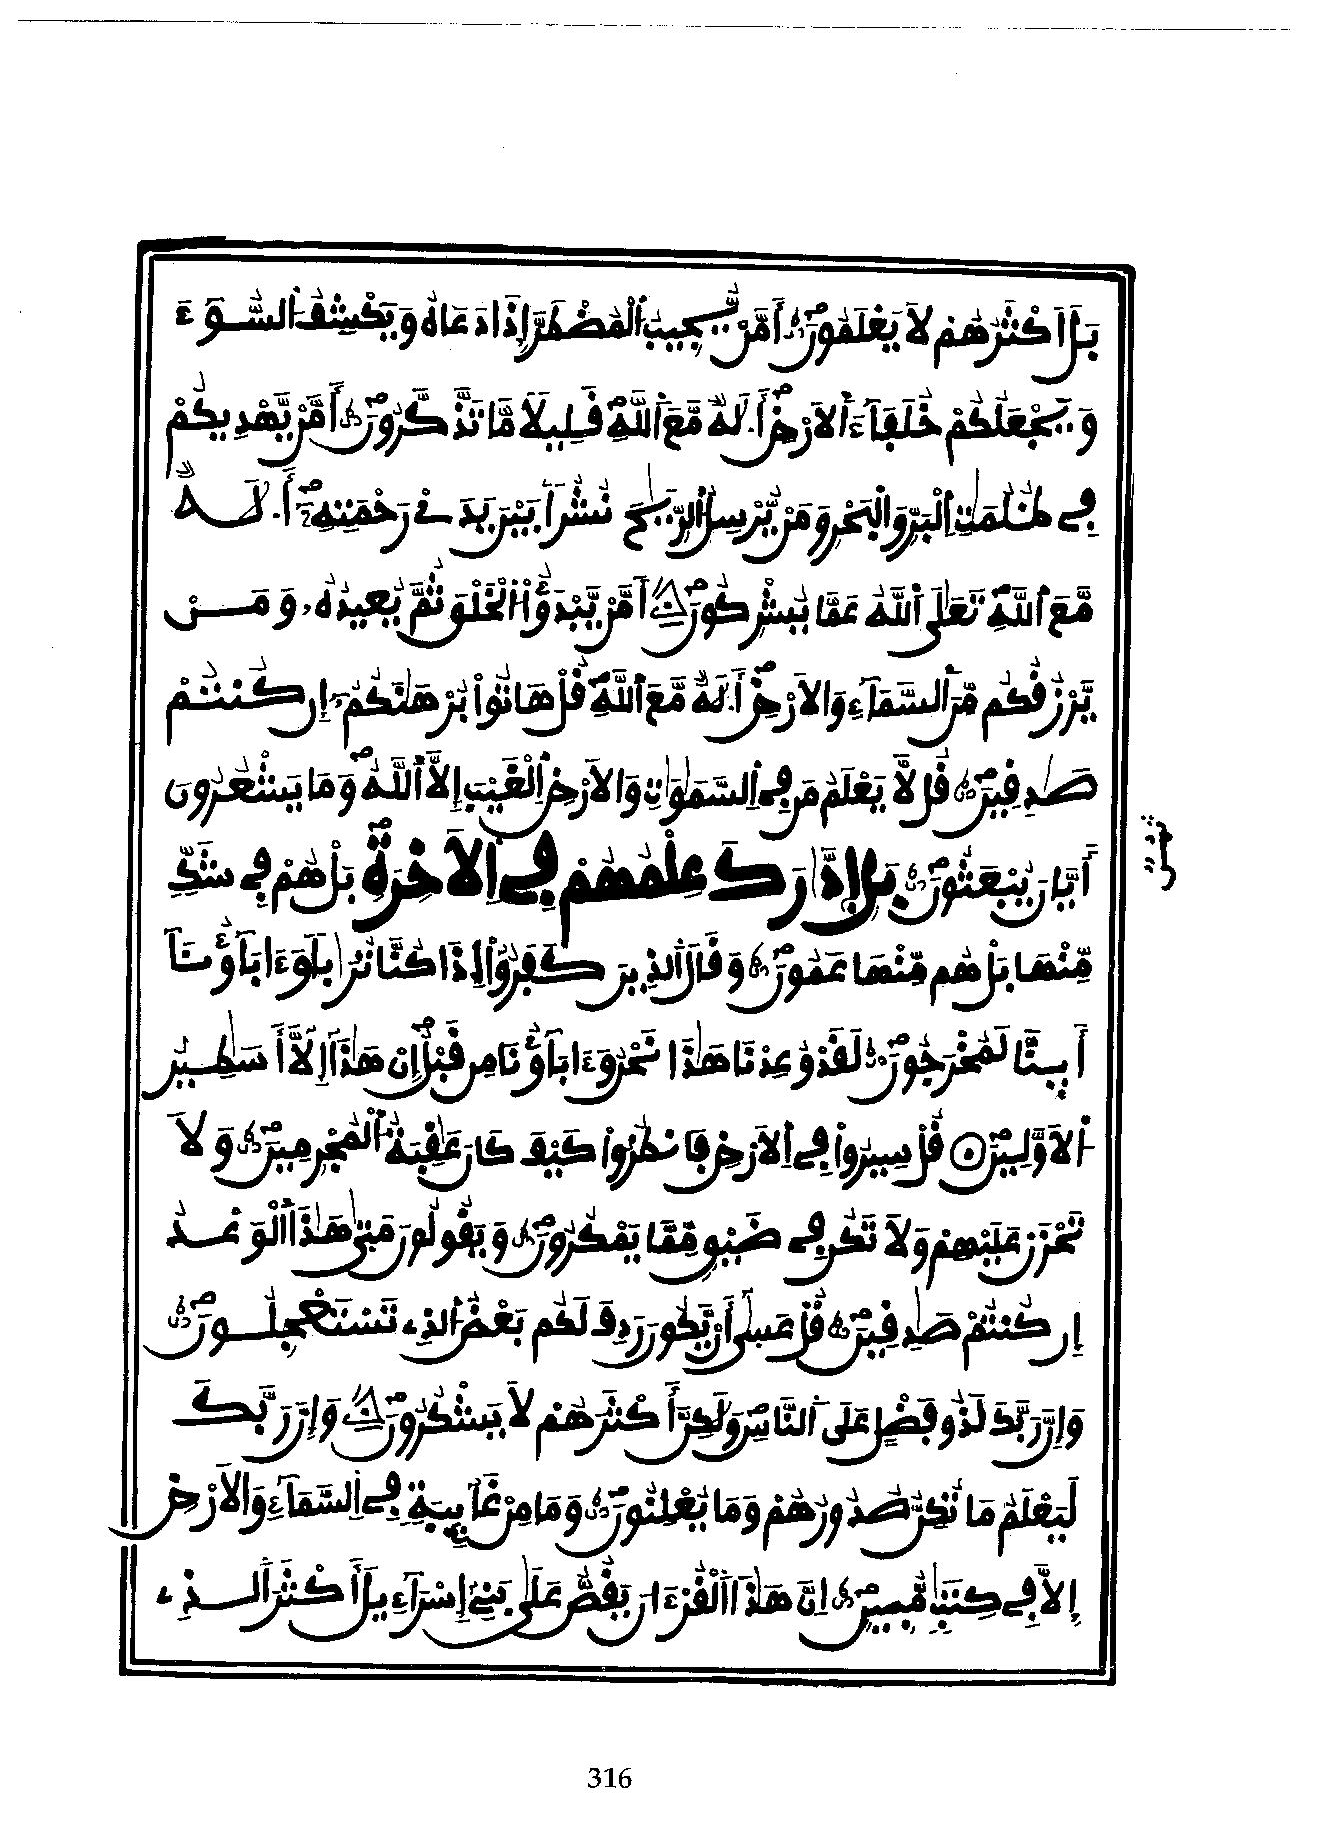 بَلَ اَكْثَرُهُمْ لَا يَعْلَمُونَ أَمَّنْ يُّجِيبُ اُ۬لْمُضْطَرَّ إِذَا دَعَاهُ وَيَكْشِفُ اُ۬لسُّوٓءَ
وَيَجْعَلُكُمْ خُلَفَآءَ اَ۬لَارْضِ أَ.لَٰهٞ مَّعَ اَ۬للَّهِ قَلِيلاٗ مَّا تَذَّكَّرُونَ أَمَّنْ يَّهْدِيكُمْ
فِے ظُلُمَٰتِ اِ۬لْبَرِّ وَالْبَحْرِ وَمَنْ يُّرْسِلُ اُ۬لرِّيَٰحَ نُشُراَۢ بَيْنَ يَدَےْ رَحْمَتِهِ أَ.لَٰهٞ
مَّعَ اَ۬للَّهِ تَعَٰلَى اَ۬للَّهُ عَمَّا يُشْرِكُونَ أَمَّنْ يَّبْدَؤُاْ اُ۬لْخَلْقَ ثُمَّ يُعِيدُهُۥ وَمَنْ
يَّرْزُقُكُم مِّنَ اَ۬لسَّمَآءِ وَالَارْضِ أَ.لَٰهٞ مَّعَ اَ۬للَّهِ قُلْ هَاتُواْ بُرْهَٰنَكُمُۥٓ إِن كُنتُمْ
صَٰدِقِينَ قُل لَّا يَعْلَمُ مَن فِے اِ۬لسَّمَٰوَٰتِ وَالَارْضِ اِ۬لْغَيْبَ إِلَّا اَ۬للَّهُ وَمَا يَشْعُرُونَ
أَيَّانَ يُبْعَثُونَ بَلِ اِ۪دَّٰرَكَ عِلْمُهُمْ فِے اِ۬لَاخِرَةِ بَلْ هُمْ فِے شَكّٖ
مِّنْهَا بَلْ هُم مِّنْهَا عَمُونَ وَقَالَ اَ۬لذِينَ كَفَرُوٓاْ إِذَا كُنَّا تُرَٰباٗ وَءَابَآؤُنَآ
أَٮ۪نَّا لَمُخْرَجُونَ لَقَدْ وُعِدْنَا هَٰذَا نَحْنُ وَءَابَآؤُنَا مِن قَبْلُ إِنْ هَٰذَآ إِلَّآ أَسَٰطِيرُ
اُ۬لَاوَّلِينَ قُلْ سِيرُواْ فِے اِ۬لَارْضِ فَانظُرُواْ كَيْفَ كَانَ عَٰقِبَةُ اُ۬لْمُجْرِمِينَ وَلَا
تَحْزَنْ عَلَيْهِمْ وَلَا تَكُن فِے ضَيْقٖ مِّمَّا يَمْكُرُونَ وَيَقُولُونَ مَتَىٰ هَٰذَا اَ۬لْوَعْدُ
إِن كُنتُمْ صَٰدِقِينَ قُلْ عَسَىٰٓ أَنْ يَّكُونَ رَدِفَ لَكُم بَعْضُ اُ۬لذِے تَسْتَعْجِلُونَ
وَإِنَّ رَبَّكَ لَذُو فَضْلٍ عَلَى اَ۬لنَّاسِ وَلَٰكِنَّ أَكْثَرَهُمْ لَا يَشْكُرُونَ وَإِنَّ رَبَّكَ
لَيَعْلَمُ مَا تُكِنُّ صُدُورُهُمْ وَمَا يُعْلِنُونَ وَمَا مِنْ غَآئِبَةٖ فِے اِ۬لسَّمَآءِ وَالَارْضِ
إِلَّا فِے كِتَٰبٖ مُّبِينٍ اِنَّ هَٰذَا اَ۬لْقُرْءَانَ يَقُصُّ عَلَىٰ بَنِےٓ إِسْرَآءِيلَ أَكْثَرَ اَ۬لذِے
316